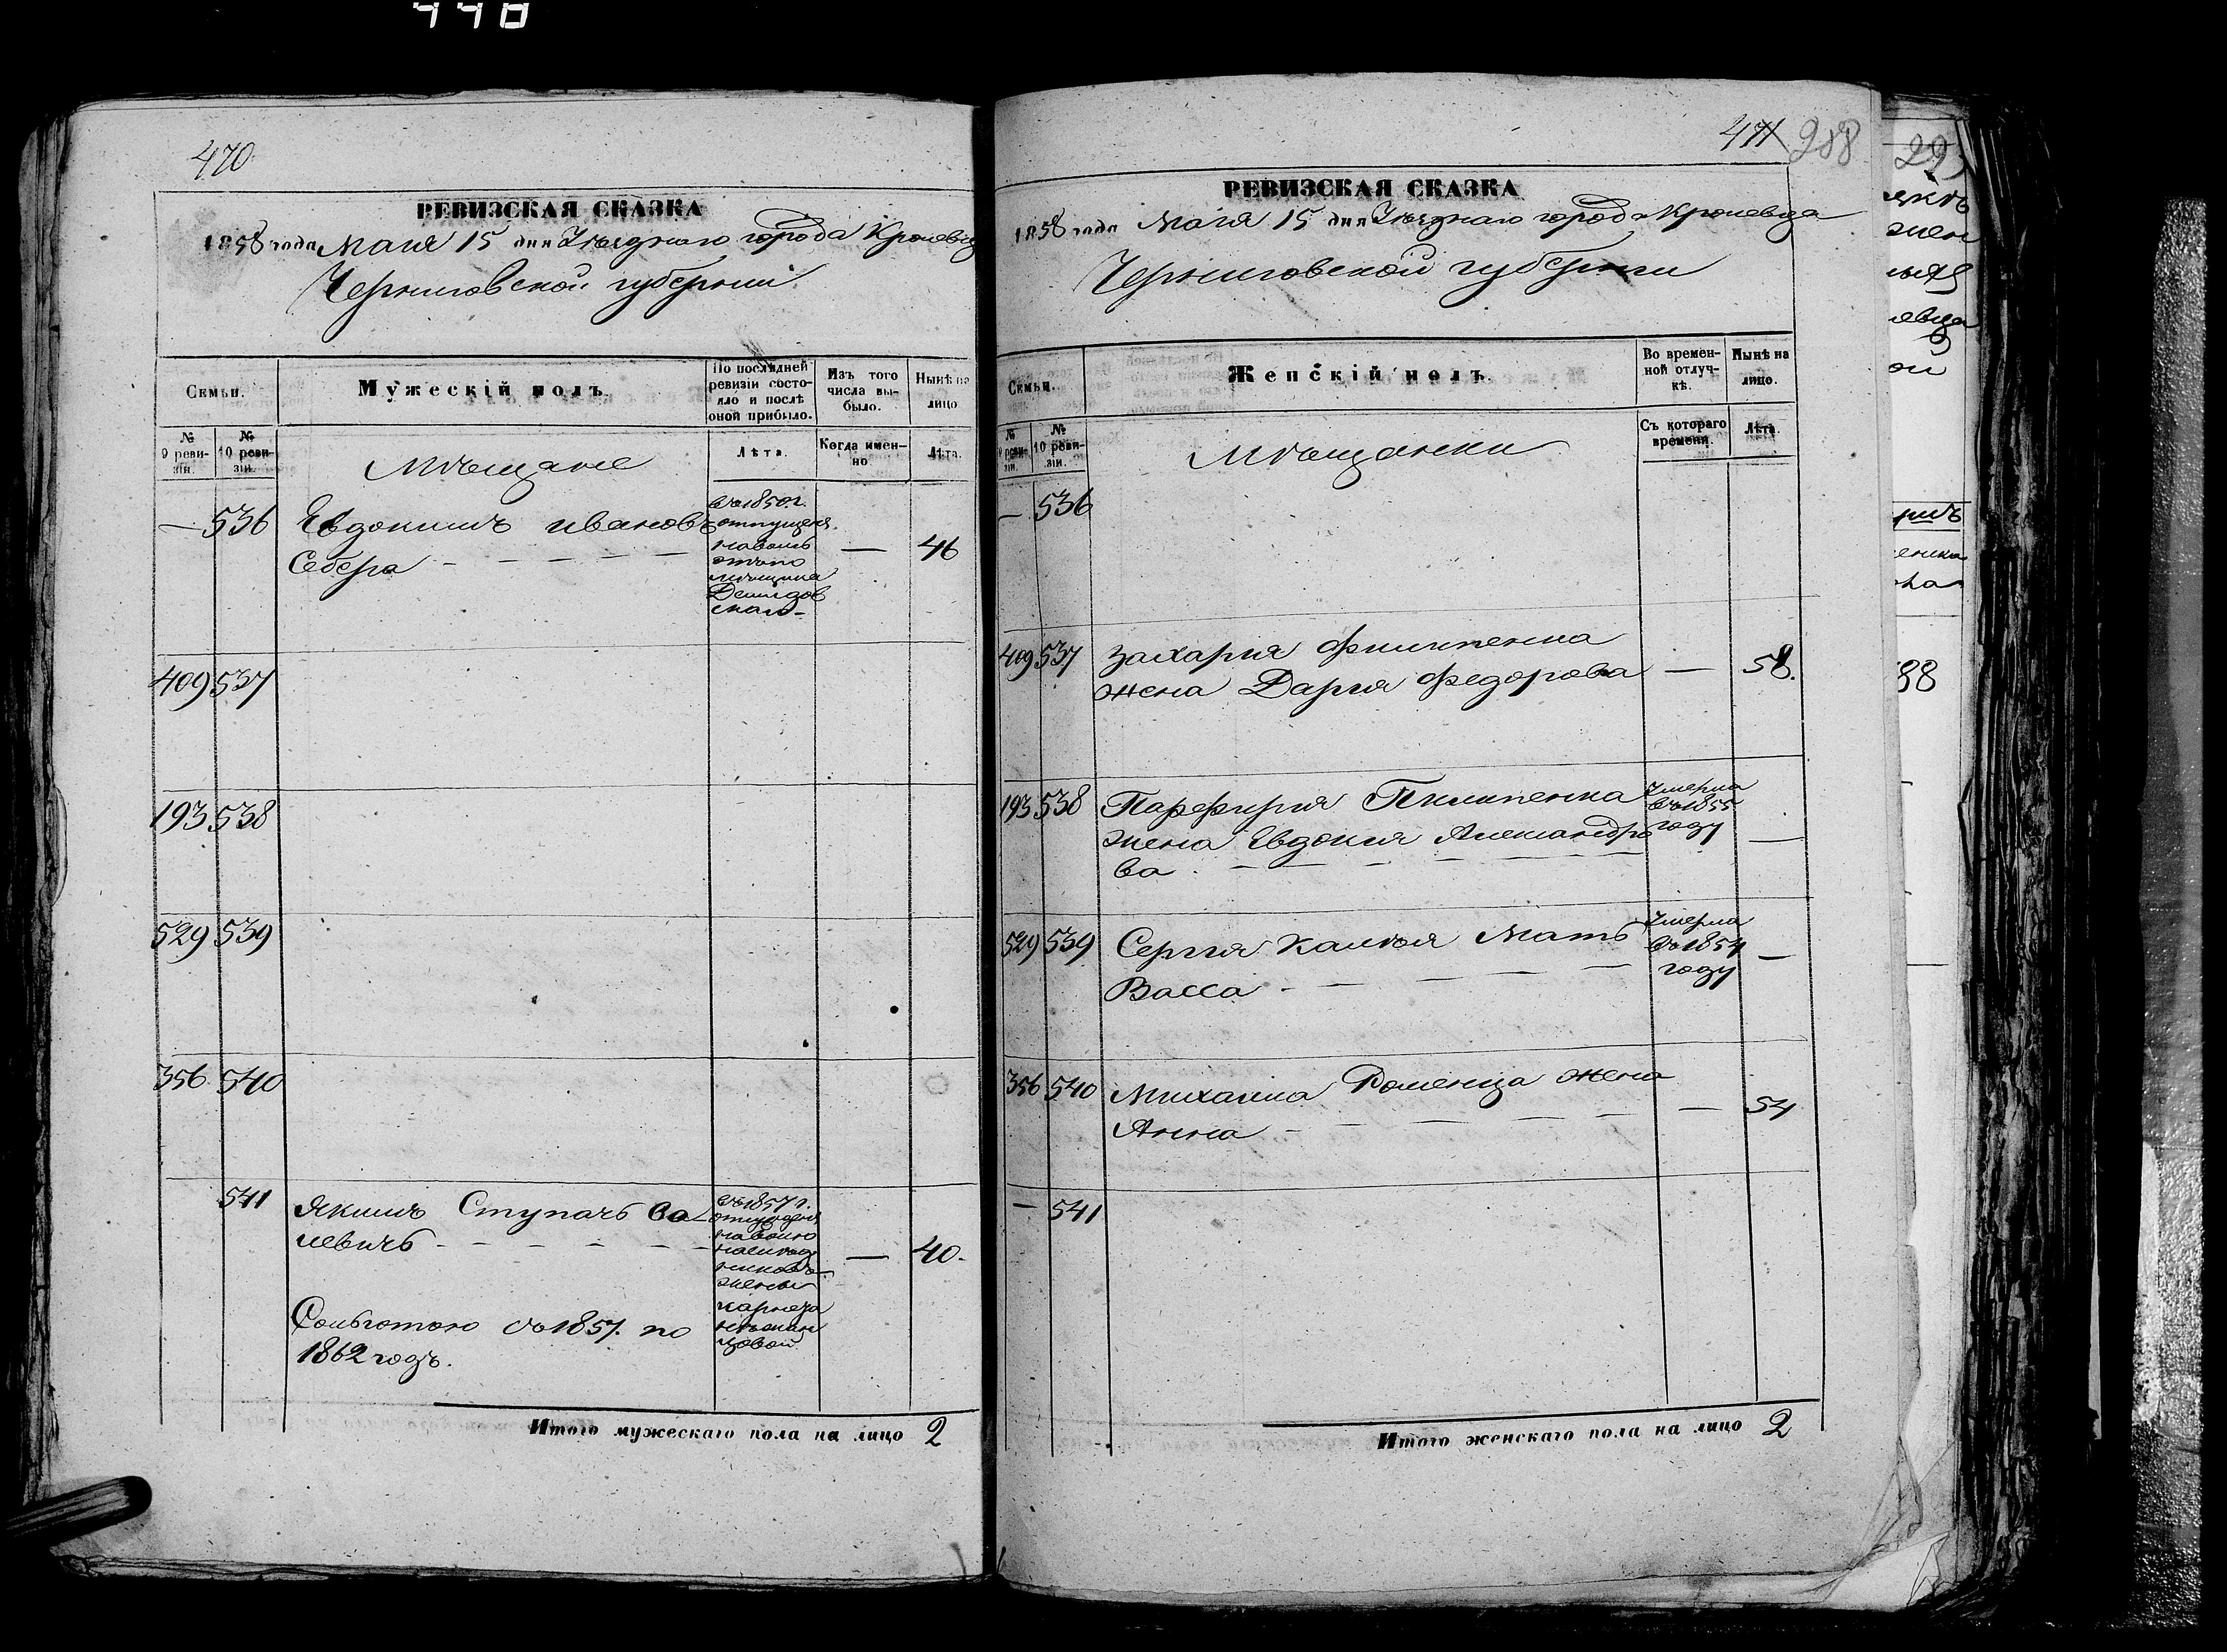 470
РЕВИЗСКАЯ СКАЗКА
1858 года Маія 15 дня Уѣзднаго города Кролевца
Черниговской губерніи
Семьи.
Мужескій полъ.
По послѣдней ревизіи состояло и послѣ оной прибыло.
Изъ того числа выбыло.
Нынѣ на лицо
№ 9 ревизіи.
№ 10 ревизіи.
Мѣщане
Лѣта.
Когда именно
Лѣта.
— 536 Евдокимъ Ивановъ
Себера — — — — — 46
въ 1850 г.
отпущенъ
мѣщанина
409 537
193 538
529 539
356 540
541 Якимъ Ступачь Ва
левичъ — — — — — 40.
въ 1857 г.
жены
Сольготою съ 1857. по
1862 годъ.
Итого мужескаго пола на лицо 2
471 288
РЕВИЗСКАЯ СКАЗКА
1858 года Маія 15 дня Уѣзднаго города Кролевца
Черниговской губерніи
Семьи.
Женскій полъ.
Во временной отлучкѣ.
Нынѣ на лицо.
№ 9 ревизіи.
№ 10 ревизіи.
Мѣщанки
Съ котораго времени.
Лѣта.
— 536
409 537 Захарія Филипенка
жена Дарія Федорова — 58.
193 538 Парфирія Пилипенка
жена Евдокія Александро
ва — — — — —
Умерла
въ 1855
году
529 539 Сергія Халява Мать
Васса — — — — —
Умерла
въ 1854
году
356 540 Михаила Роменца жена
Анна — — — — — 54
— 541
Итого женскаго пола на лицо 2
88